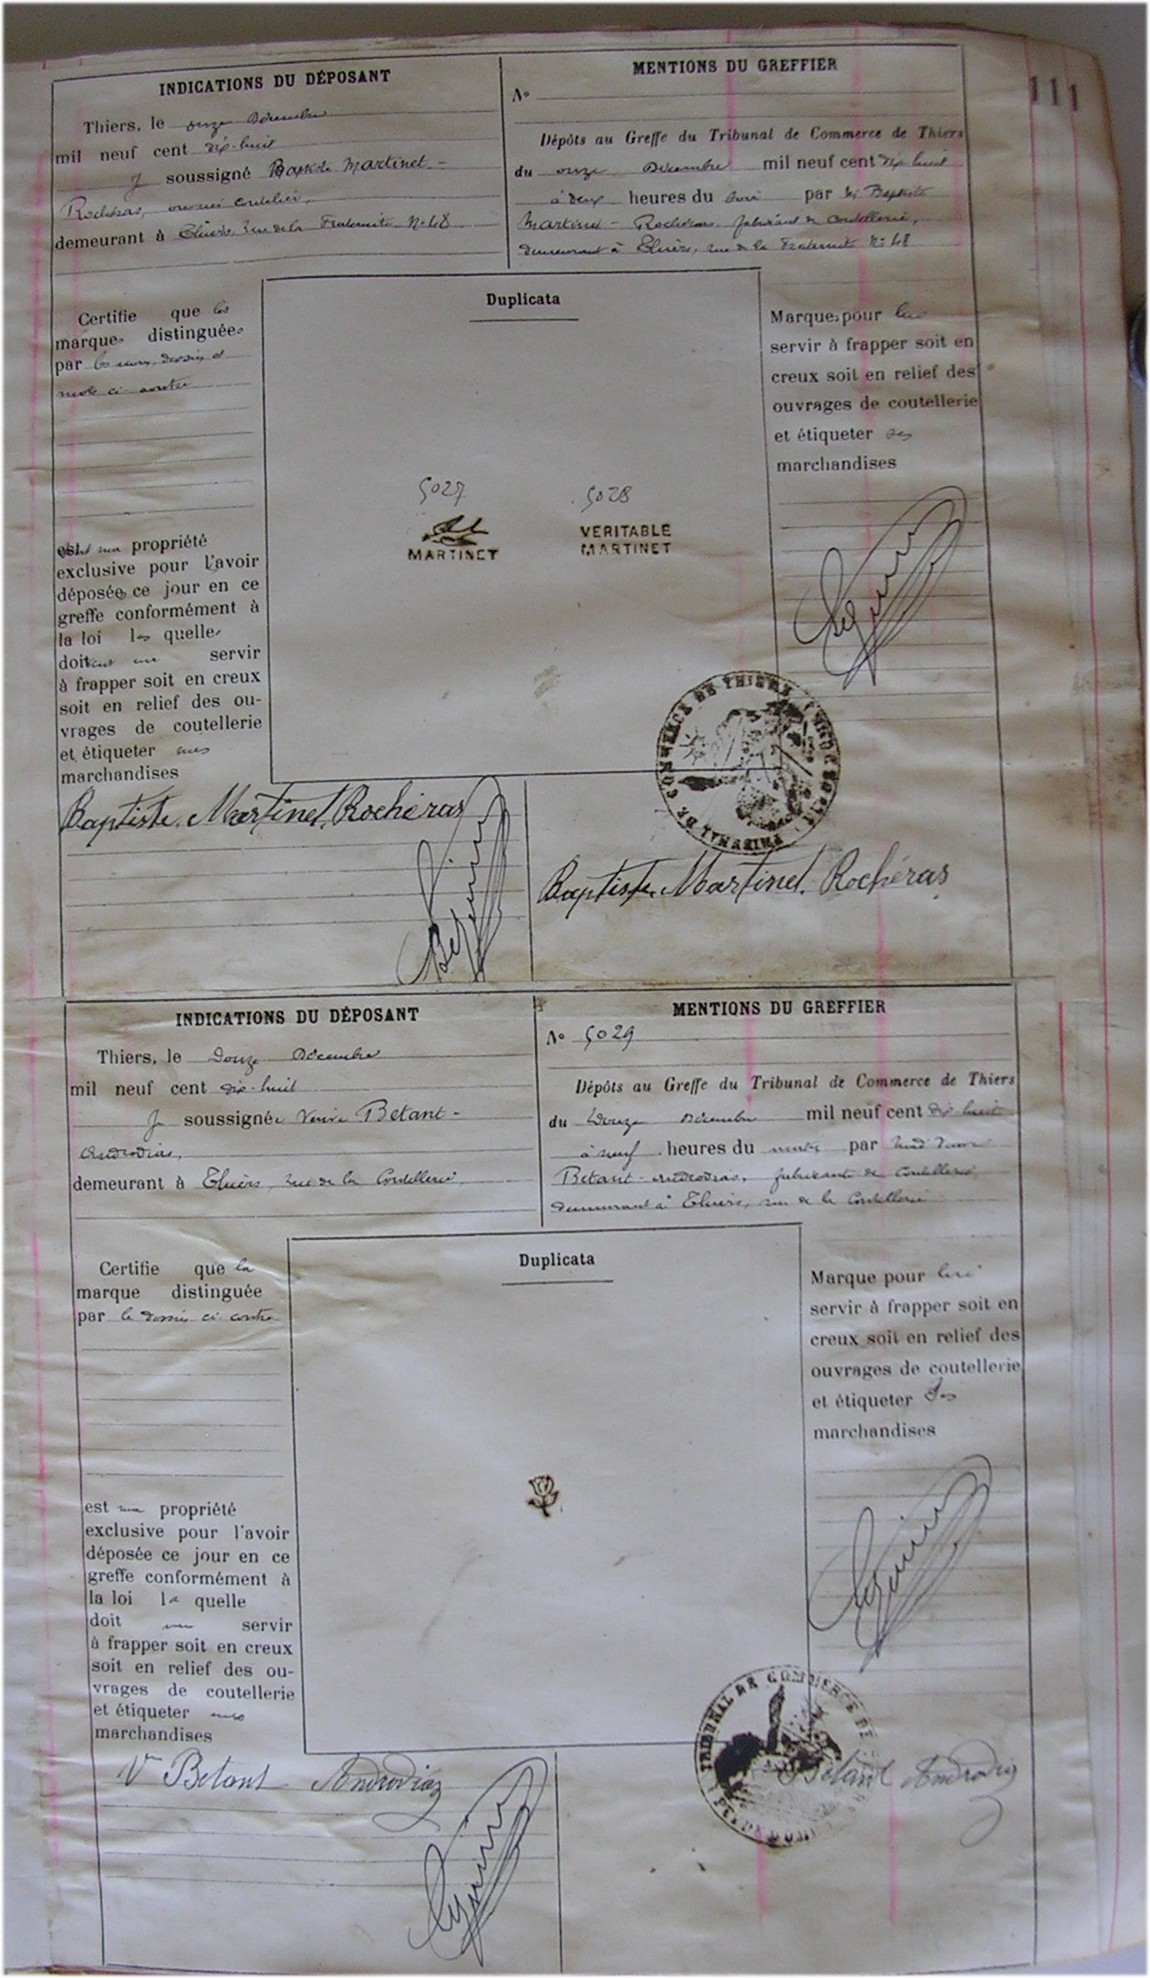 111
INDICATIONS DU DÉPOSANT
Thiers, le onze Décembre
mil neuf cent dix-huit
Je soussigné Baptiste Martinet-
Rochéras, ouvrier coutelier,
demeurant à Thiers, rue de la Fraternité, N° 48
MENTIONS DU GREFFIER
N°
Dépôts au Greffe du Tribunal de Commerce de Thiers
du onze Décembre mil neuf cent dix huit
à deux heures du soir par Mr Baptiste
Martinet - Rochéras fabricant de coutellerie,
demeurant à Thiers, rue de la Fraternité N° 48
Certifie que les
marques distinguées
par les noms, dessin et
mots ci contre
est ma propriété
exclusive pour l'avoir
déposées ce jour en ce
greffe conformément à
la loi les quelles
doivent me servir
à frapper soit en creux
soit en relief des ou-
vrages de coutellerie
et étiqueter mes
marchandises
Duplicata
5027
MARTINET
5028
VERITABLE
MARTINET
Marques pour lui
servir à frapper soit en
creux soit en relief des
ouvrages de coutellerie
et étiqueter ses
marchandises
TRIBUNAL DE COMMERCE DE THIERS
Baptiste Martinet Rochéras
Baptiste Martinet Rochéras
INDICATIONS DU DÉPOSANT
Thiers, le Douze Décembre
mil neuf cent dix-huit
Je soussignée Veuve Betant-
Androdias,
demeurant à Thiers, rue de la Coutellerie,
MENTIONS DU GREFFIER
N° 5029
Dépôts au Greffe du Tribunal de Commerce de Thiers
du Douze Décembre mil neuf cent dix huit
à neuf heures du matin par Mad Veuve
Betant-Androdias, fabricante de Coutellerie,
demeurant à Thiers, rue de la Coutellerie
Certifie que la
marque distinguée
par le dessin ci contre
est ma propriété
exclusive pour l'avoir
déposée ce jour en ce
greffe conformément à
la loi la quelle
doit me servir
à frapper soit en creux
soit en relief des ou-
vrages de coutellerie
et étiqueter mes
marchandises
Duplicata
Marque pour lui
servir à frapper soit en
creux soit en relief des
ouvrages de coutellerie
et étiqueter ses
marchandises
TRIBUNAL DE COMMERCE DE
Ve Betant Androdias
Betant Androdias